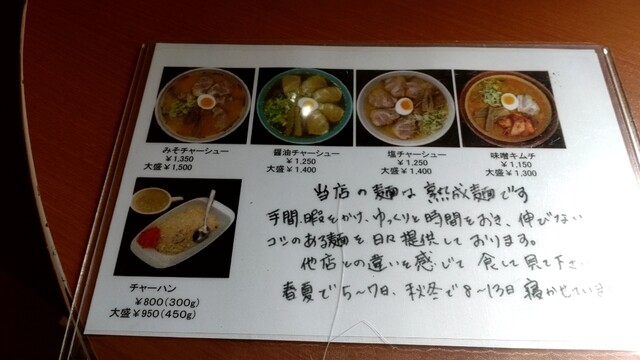 みそチャーシュー
￥1,350
大盛￥1,500
醤油チャーシュー
￥1,250
大盛￥1,400
塩チャーシュー
￥1,250
大盛￥1,400
味噌キムチ
￥1,150
大盛￥1,300
チャーハン
￥800(300g)
大盛￥950(450g)
当店の麺は熟成麺です
手間.暇をかけ、ゆっくりと時間をおき、伸びない
コシのある麺を日々提供しております。
他店との違いを感じて食して見て下さ
春夏で5〜7日、秋冬で8〜13日寝かせていま